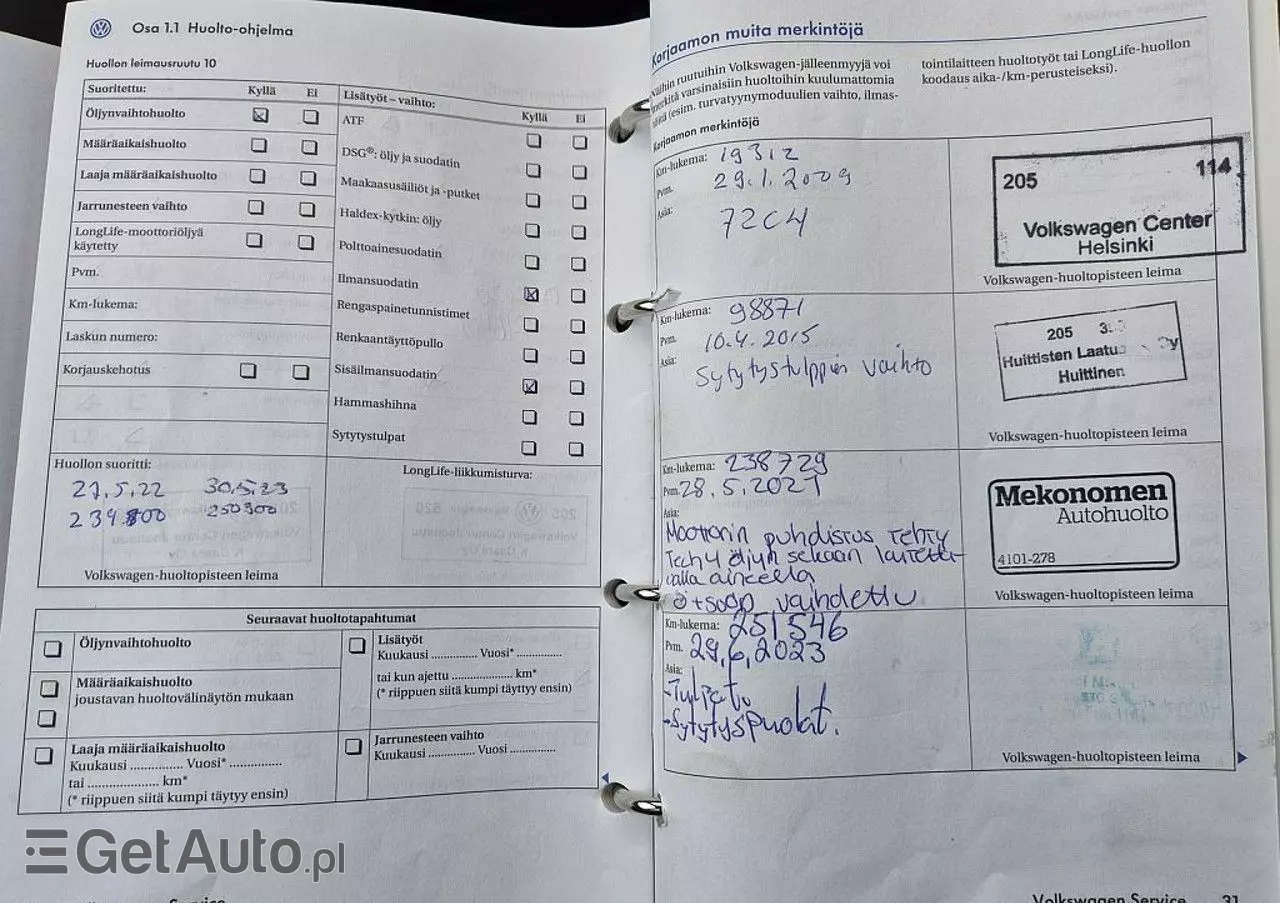 Osa 1.1 Huolto-ohjelma
Huollon leimausruutu 10
Suoritettu: Kyllä Ei
Öljynvaihtohuolto
Määräaikaishuolto
Laaja määräaikaishuolto
Jarrunesteen vaihto
LongLife-moottoriöljyä
käytetty
Pvm.
Km-lukema:
Laskun numero:
Korjauskehotus
Lisätyöt – vaihto: Kyllä Ei
ATF
DSG®: öljy ja suodatin
Maakaasusäiliöt ja -putket
Haldex-kytkin: öljy
Polttoainesuodatin
Ilmansuodatin
Rengaspainetunnistimet
Renkaantäyttöpullo
Sisäilmansuodatin
Hammashihna
Sytytystulpat
Huollon suoritti:
27.5.22 30.5.23
239.800 250900
Volkswagen-huoltopisteen leima
LongLife-liikkumisturva:
Seuraavat huoltotapahtumat
Öljynvaihtohuolto
Määräaikaishuolto
joustavan huoltovälinäytön mukaan
Laaja määräaikaishuolto
Kuukausi ............... Vuosi* ...............
tai ..................... km*
(* riippuen siitä kumpi täytyy ensin)
Lisätyöt
Kuukausi ............. Vuosi* .............
tai kun ajettu .................... km*
(* riippuen siitä kumpi täyttyy ensin)
Jarrunesteen vaihto
Kuukausi ............. Vuosi .............
Korjaamon muita merkintöjä
Näihin ruutuihin Volkswagen-jälleenmyyjä voi
merkitä varsinaisiin huoltoihin kuulumattomia
töitä (esim. turvatyynymoduulien vaihto, ilmas-
tointilaitteen huoltotyöt tai LongLife-huollon
koodaus aika-/km-perusteiseksi).
Korjaamon merkintöjä
Km-lukema: 19312
Pvm. 29.1.2009
Asia: 72C4
205 114
Volkswagen Center
Helsinki
Volkswagen-huoltopisteen leima
Km-lukema: 98871
Pvm. 10.4.2015
Asia: Sytytystulppien vaihto
205
Huittisten Laatu Oy
Huittinen
Volkswagen-huoltopisteen leima
Km-lukema: 238729
Pvm. 28.5.2021
Asia:
Moottorin puhdistus tehty
Tech4 öljyn sekaan laitetta-
valla aineella
Ö+soop vaihdettu
Mekonomen
Autohuolto
4101-278
Volkswagen-huoltopisteen leima
Km-lukema: 251546
Pvm. 29.6.2023
Asia:
-Tulpat
-Sytytyspuolat.
Volkswagen-huoltopisteen leima
Volkswagen Service 31
GetAuto.pl